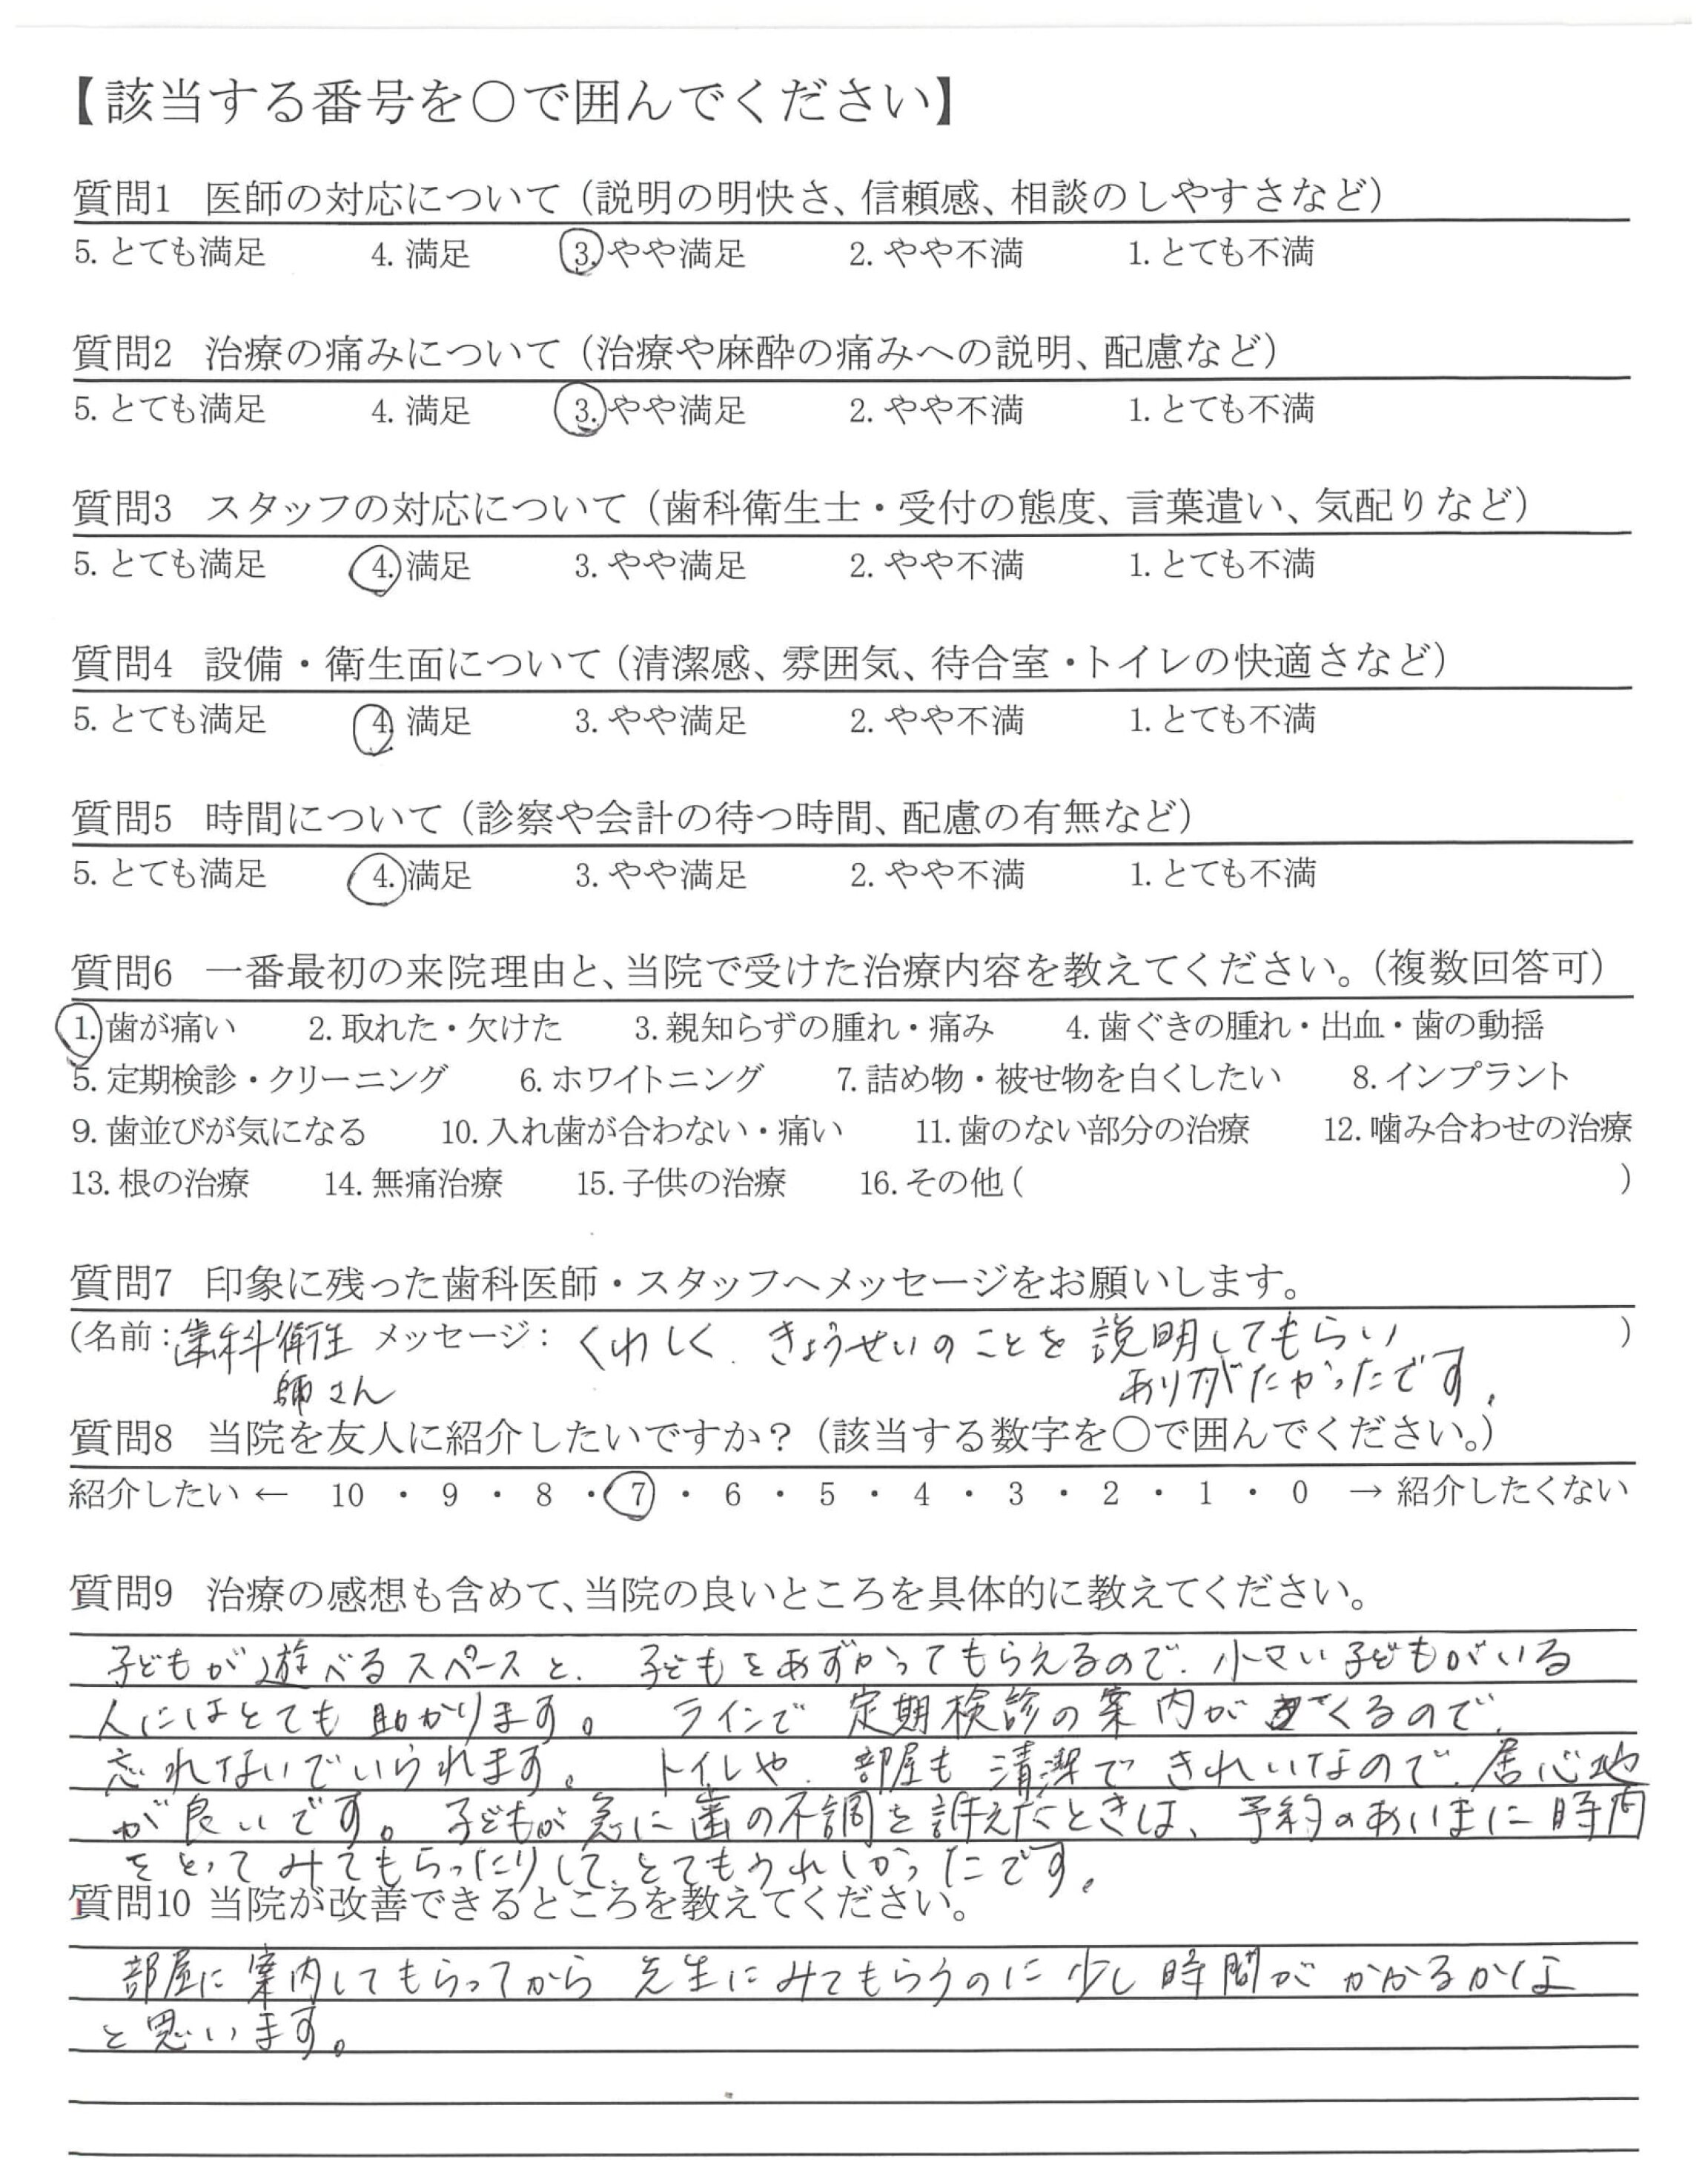 【該当する番号を〇で囲んでください】
質問1 医師の対応について（説明の明快さ、信頼感、相談のしやすさなど）
5. とても満足 4. 満足 3. やや満足 2. やや不満 1. とても不満
質問2 治療の痛みについて（治療や麻酔の痛みへの説明、配慮など）
5. とても満足 4. 満足 3. やや満足 2. やや不満 1. とても不満
質問3 スタッフの対応について（歯科衛生士・受付の態度、言葉遣い、気配りなど）
5. とても満足 4. 満足 3. やや満足 2. やや不満 1. とても不満
質問4 設備・衛生面について（清潔感、雰囲気、待合室・トイレの快適さなど）
5. とても満足 4. 満足 3. やや満足 2. やや不満 1. とても不満
質問5 時間について（診察や会計の待つ時間、配慮の有無など）
5. とても満足 4. 満足 3. やや満足 2. やや不満 1. とても不満
質問6 一番最初の来院理由と、当院で受けた治療内容を教えてください。（複数回答可）
1. 歯が痛い 2. 取れた・欠けた 3. 親知らずの腫れ・痛み 4. 歯ぐきの腫れ・出血・歯の動揺
5. 定期検診・クリーニング 6. ホワイトニング 7. 詰め物・被せ物を白くしたい 8. インプラント
9. 歯並びが気になる 10. 入れ歯が合わない・痛い 11. 歯のない部分の治療 12. 噛み合わせの治療
13. 根の治療 14. 無痛治療 15. 子供の治療 16. その他（ ）
質問7 印象に残った歯科医師・スタッフへメッセージをお願いします。
（名前：歯科衛生 メッセージ：くわしく、きょうせいのことを説明してもらい ）
師さん ありがたかったです。
質問8 当院を友人に紹介したいですか？（該当する数字を〇で囲んでください。）
紹介したい ← 10 ・ 9 ・ 8 ・ 7 ・ 6 ・ 5 ・ 4 ・ 3 ・ 2 ・ 1 ・ 0 → 紹介したくない
質問9 治療の感想も含めて、当院の良いところを具体的に教えてください。
子どもが遊べるスペースと、子どもをあずかってもらえるので、小さい子どもがいる
人にはとても助かります。 ラインで 定期検診の案内がくるので、
忘れないでいられます。 トイレや、部屋も清潔できれいなので、居心地
が良いです。子どもが急に歯の不調を訴えたときは、予約のあいまに時間
をとってみてもらったりして、とてもうれしかったです。
質問10 当院が改善できるところを教えてください。
部屋に案内してもらってから 先生にみてもらうのに少し時間がかかるかな
と思います。